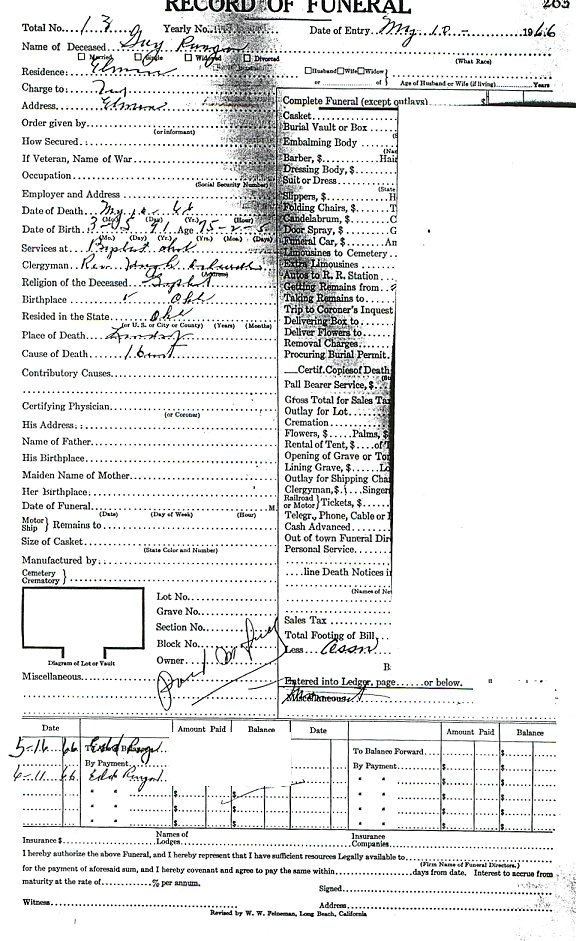 RECORD OF FUNERAL 263
Total No. 13 Yearly No. Date of Entry May 10 - 1966
Name of Deceased Guy Runyon
Married Single Widowed Divorced (What Race)
Residence: Elmore Husband Wife Widow
or of Age of Husband or Wife (if living) Years
Charge to:
Address Elmore
Order given by
(or informant)
How Secured:
If Veteran, Name of War
Occupation
(Social Security Number)
Employer and Address
Date of Death May 10 - 66
(Mo.) (Day) (Yr.) (Hour)
Date of Birth 3-05-91 Age 75-2-5
(Mo.) (Day) (Yr.) (Yrs.) (Mos.) (Days)
Services at Baptist church
Clergyman Rev.
(Address)
Religion of the Deceased Baptist
Birthplace Okl
Resided in the State Okl
(or U. S. or City or County) (Years) (Months)
Place of Death Lindsay
Cause of Death
Contributory Causes
Certifying Physician
(or Coroner)
His Address:
Name of Father
His Birthplace
Maiden Name of Mother
Her Birthplace
Date of Funeral M.
(Date) (Day of Week) (Hour)
Motor Ship } Remains to
Size of Casket
(State Color and Number)
Manufactured by:
Cemetery Crematory }
Complete Funeral (except outlays) $
Casket
Burial Vault or Box
Embalming Body
Barber, $ Hair
Dressing Body, $
Suit or Dress
(State
Slippers, $ H
Folding Chairs, $ T
Candelabrum, $ C
Door Spray, $ G
Funeral Car, $ Am
Limousines to Cemetery
Extra Limousines
Autos to R. R. Station
Getting Remains from
Taking Remains to
Trip to Coroner's Inquest
Delivering Box to
Deliver Flowers to
Removal Charges
Procuring Burial Permit
Certif. Copies of Death
Pall Bearer Service, $
Gross Total for Sales Tax
Outlay for Lot
Cremation
Flowers, $ Palms, $
Rental of Tent, $ of T
Opening of Grave or Tom
Lining Grave, $ Lo
Outlay for Shipping Cha
Clergyman, $ Singer
Railroad or Motor } Tickets, $
Telegr., Phone, Cable or
Cash Advanced
Out of town Funeral Dir
Personal Service
line Death Notices i
(Names of New
Sales Tax
Total Footing of Bill
Less
B
Entered into Ledger, page or below.
Miscellaneous
Lot No.
Grave No.
Section No.
Block No.
Owner
Diagram of Lot or Vault
Miscellaneous
Date Amount Paid Balance Date Amount Paid Balance
5-16 66 To Balance Forward $ $
By Payment By Payment
6-11 66 " " $ $
" " $ $ " " $ $
" " $ $ " " $ $
" " $ $ " " $ $
Insurance $ Names of Lodges Insurance Companies
I hereby authorize the above Funeral, and I hereby represent that I have sufficient resources Legally available to
(Firm Name of Funeral Directors.)
for the payment of aforesaid sum, and I hereby covenant and agree to pay the same within days from date. Interest to accrue from
maturity at the rate of % per annum. Signed
Witness Address
Revised by W. W. Feineman, Long Beach, California